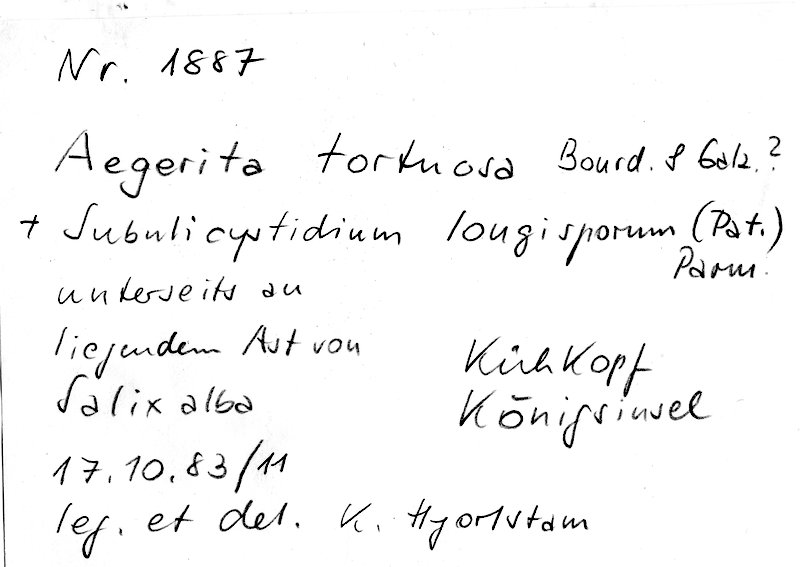 Nr. 1887
Aegerita tortuosa Bourd. & Galz.?
+ Subulicystidium longisporum (Pat.)
Parm.
unterseits an
liegendem Ast von
Salix alba
Kühkopf
Königsinsel
17.10.83/11
leg. et det. K. Hjortstam